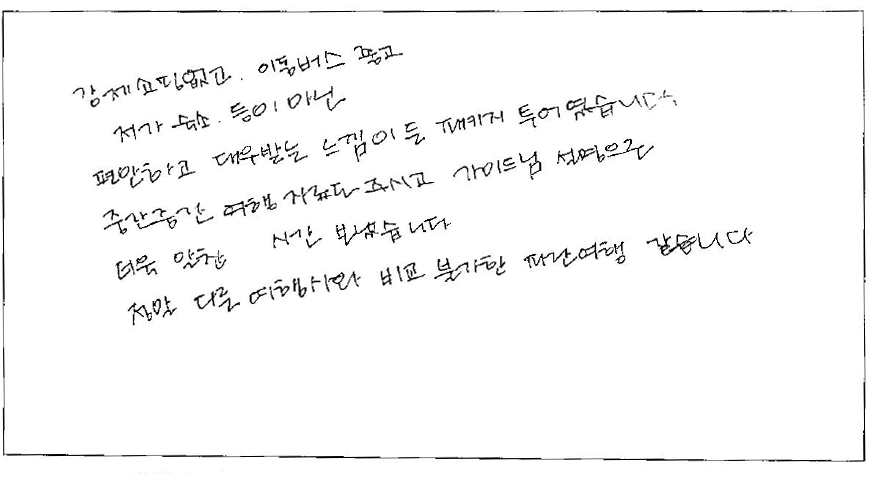 강제쇼핑없고. 이동버스 좋고
저가 숙소. 등이 아닌
편안하고 대우받는 느낌이 든 패키지 투어였습니다.
중간중간 여행 자료도 주시고 가이드님 설명으로
더욱 알찬 시간 보냈습니다
정말 다른 여행사와 비교 불가한 파란여행 같습니다